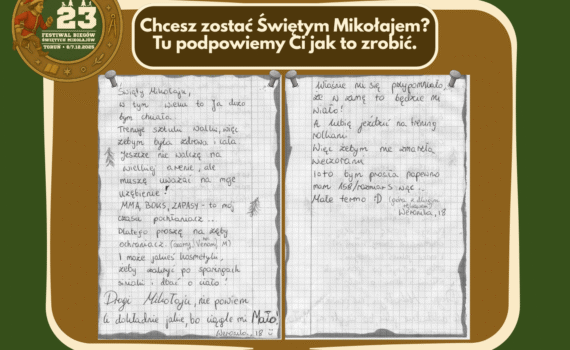 23
FESTIWAL BIEGÓW
ŚWIĘTYCH MIKOŁAJÓW
TORUŃ • 6/7.12.2025
Chcesz zostać Świętym Mikołajem?
Tu podpowiemy Ci jak to zrobić.
Święty Mikołaju,
w tym wieku to Ja dużo
bym chciała.
Trenuje sztuki walki, więc
żebym była zdrowa i cała.
Jeszcze nie walczę na
wielkiej arenie, ale
muszę uważać na moje
uzębienie!
MMA, BOKS, ZAPASY - to mój
czasu pochłaniacz..
Dlatego proszę na zęby
ochraniacz. (czarny, Venum, M)
I może jakieś kosmetyki,
żeby
po sparingach
siniaki i dbać o ciało!
Drogi Mikołaju, nie powiem
Ci dokładnie jakie, bo ciągle mi Mało!
Weronika, 18
Właśnie mi się przypomniało,
że w zimę to będzie mi
wiało!
A lubię jeździć na trening
rolkami
Więc żebym nie zmarzła
wieczorami
to bym prosiła
nam 158/rozmiar S więc..
Małe termo :D (góra z długim
rękawem)
Weronika, 18